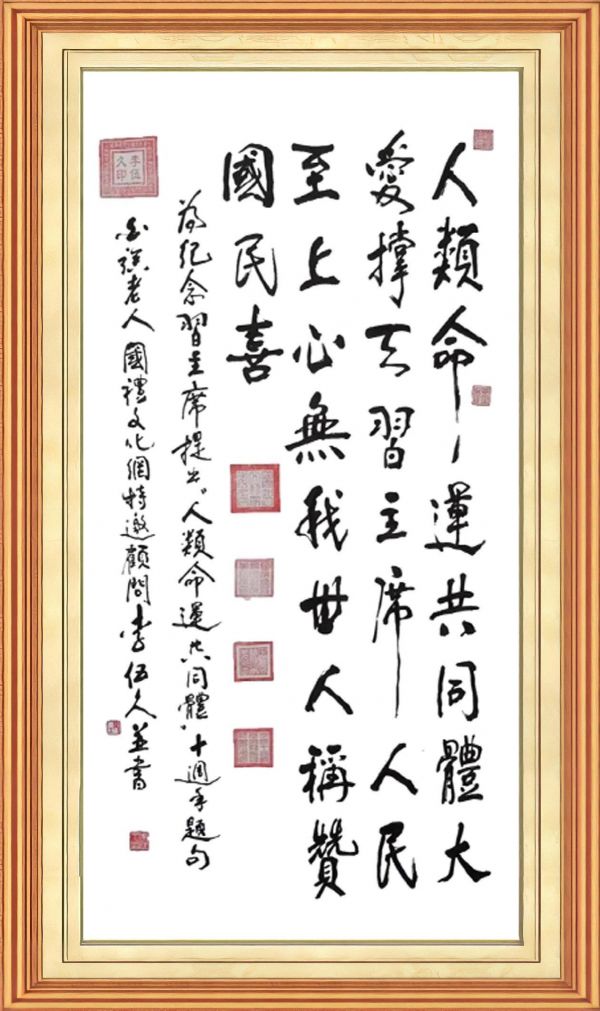 人類命運共同體大
愛撑天習主席人民
至上心無我世人稱贊
國民喜
為紀念習主席提出“人類命運共同體”十週年題句
老人國禮文化網特邀顧問李伍久並書
李伍久印